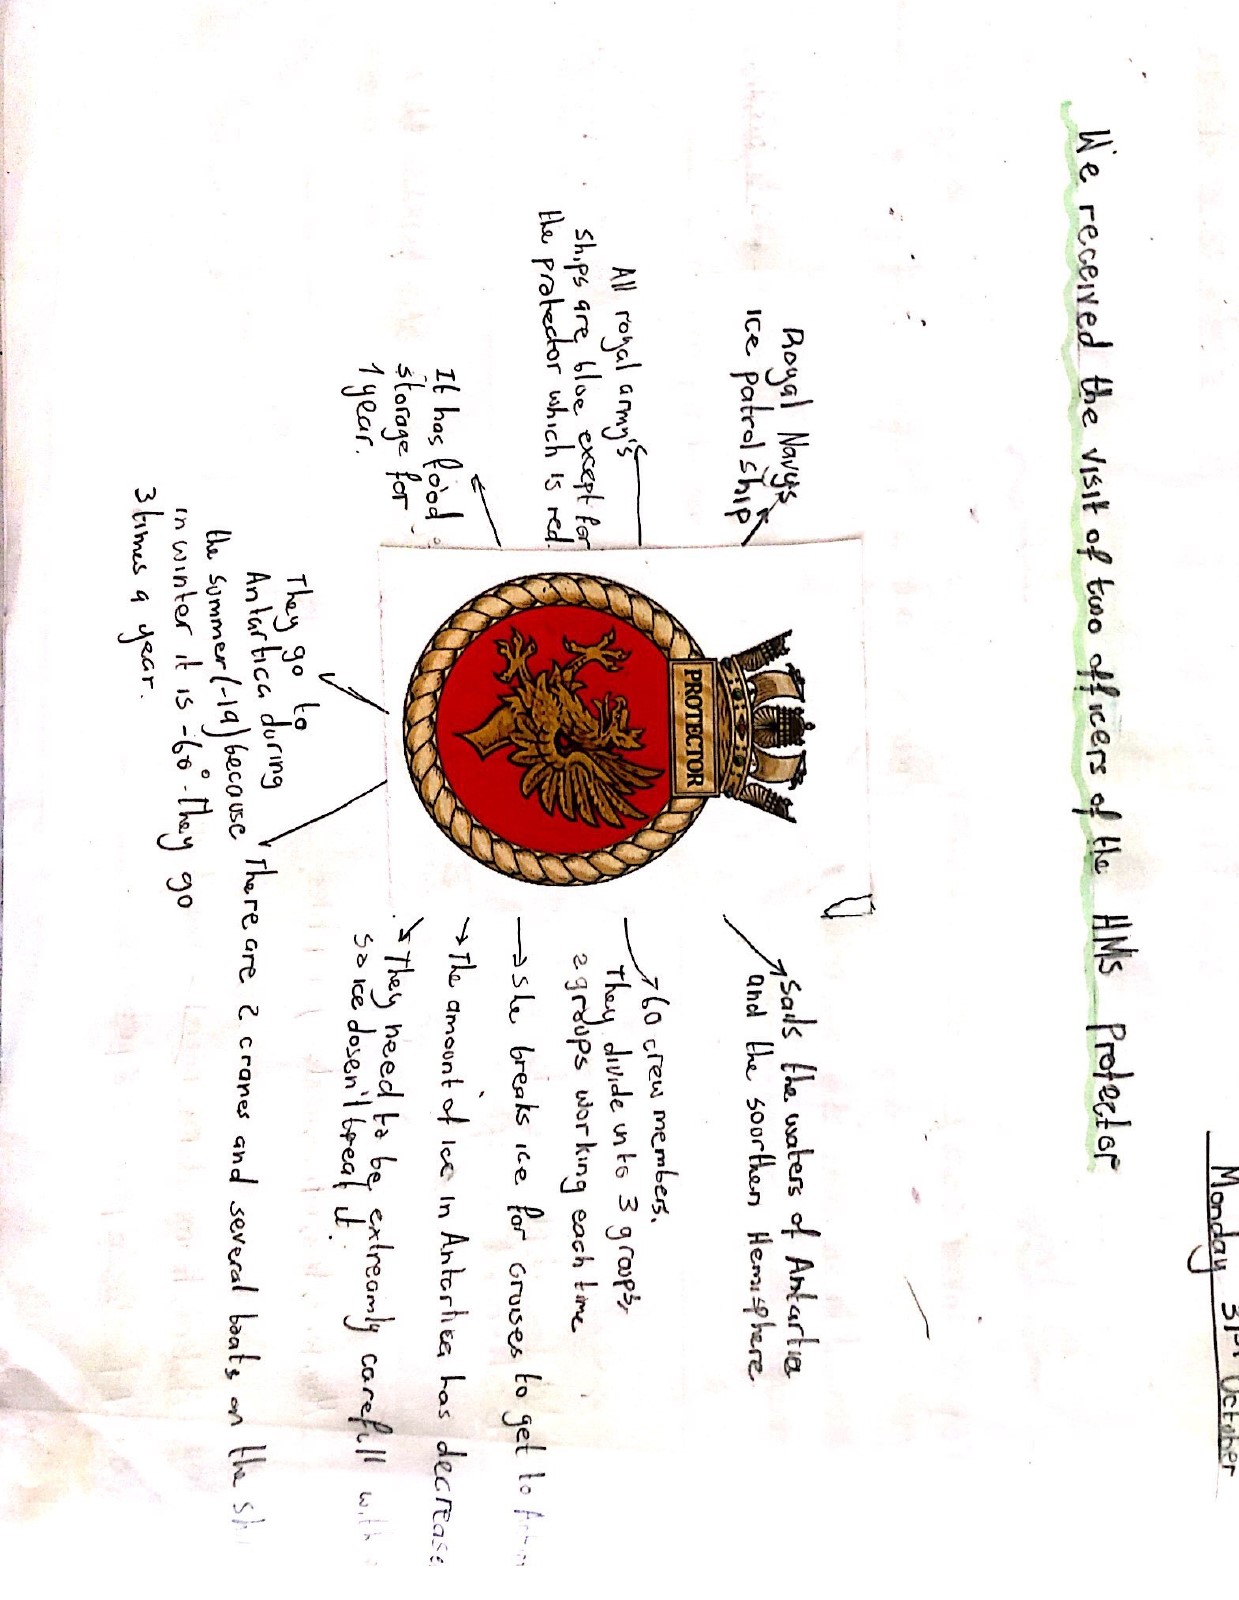 Monday 31st October
We received the visit of two officers of the HMS Protector
Royal Navy's
ice patrol ship
All royal army's
ships are blue except for
the protector which is red.
It has food
storage for
1 year.
They go to
Antartica during
the summer (-19) because
in winter it is -60°. They go
3 times a year.
PROTECTOR
Sails the waters of Antartia
and the soorthen Hemisphere
60 crew members.
They divide into 3 groups,
2 groups working each time
She breaks ice for cruises to get to
The amount of ice in Antartica has decrease
They need to be extreamly carefull with
so ice dosen't break it.
There are 2 cranes and several boats on the